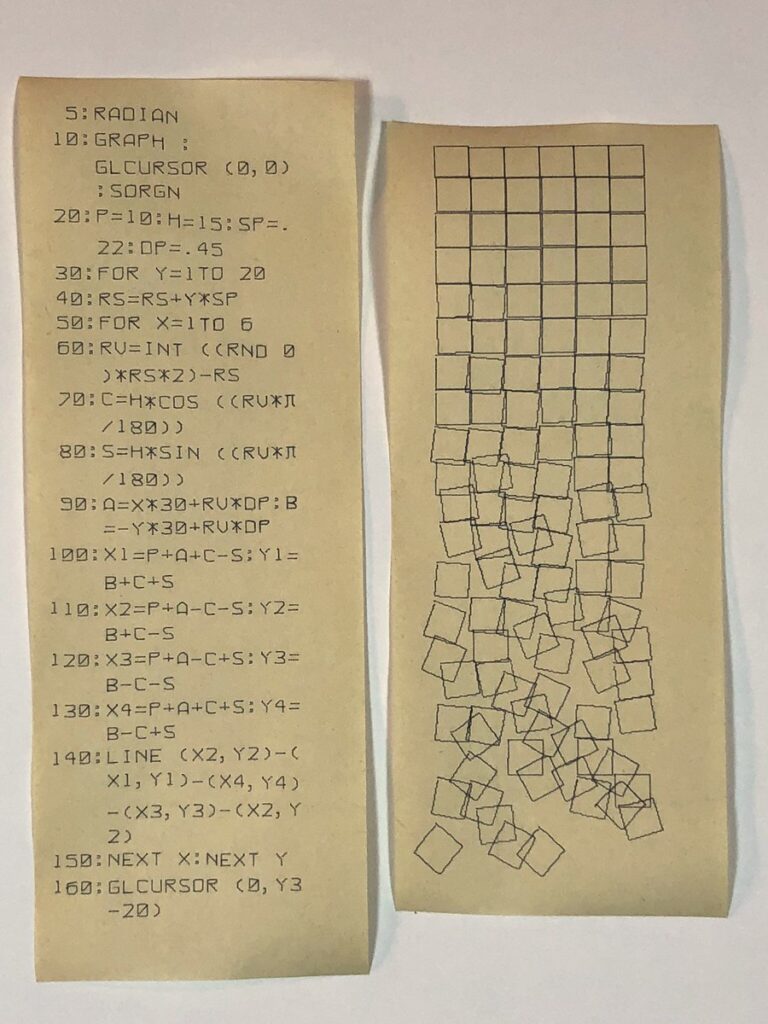 5:RADIAN
10:GRAPH :
GLCURSOR (0,0)
:SORGN
20:P=10:H=15:SP=.
22:DP=.45
30:FOR Y=1TO 20
40:RS=RS+Y*SP
50:FOR X=1TO 6
60:RV=INT ((RND 0
)*RS*2)-RS
70:C=H*COS ((RV*π
/180))
80:S=H*SIN ((RV*π
/180))
90:A=X*30+RV*DP:B
=-Y*30+RV*DP
100:X1=P+A+C-S:Y1=
B+C+S
110:X2=P+A-C-S:Y2=
B+C-S
120:X3=P+A-C+S:Y3=
B-C-S
130:X4=P+A+C+S:Y4=
B-C+S
140:LINE (X2,Y2)-(
X1,Y1)-(X4,Y4)
-(X3,Y3)-(X2,Y
2)
150:NEXT X:NEXT Y
160:GLCURSOR (0,Y3
-20)